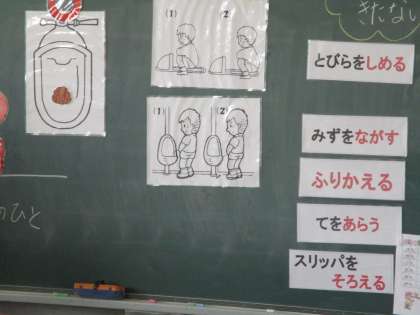 きたない
(1)
(2)
とびらをしめる
(1)
(2)
みずをながす
ふりかえる
のひと
てをあらう
スリッパを
そろえる